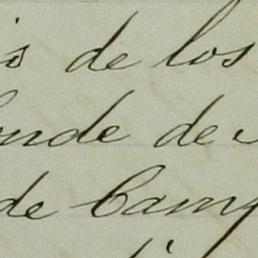 is de los
onde de
de Camp